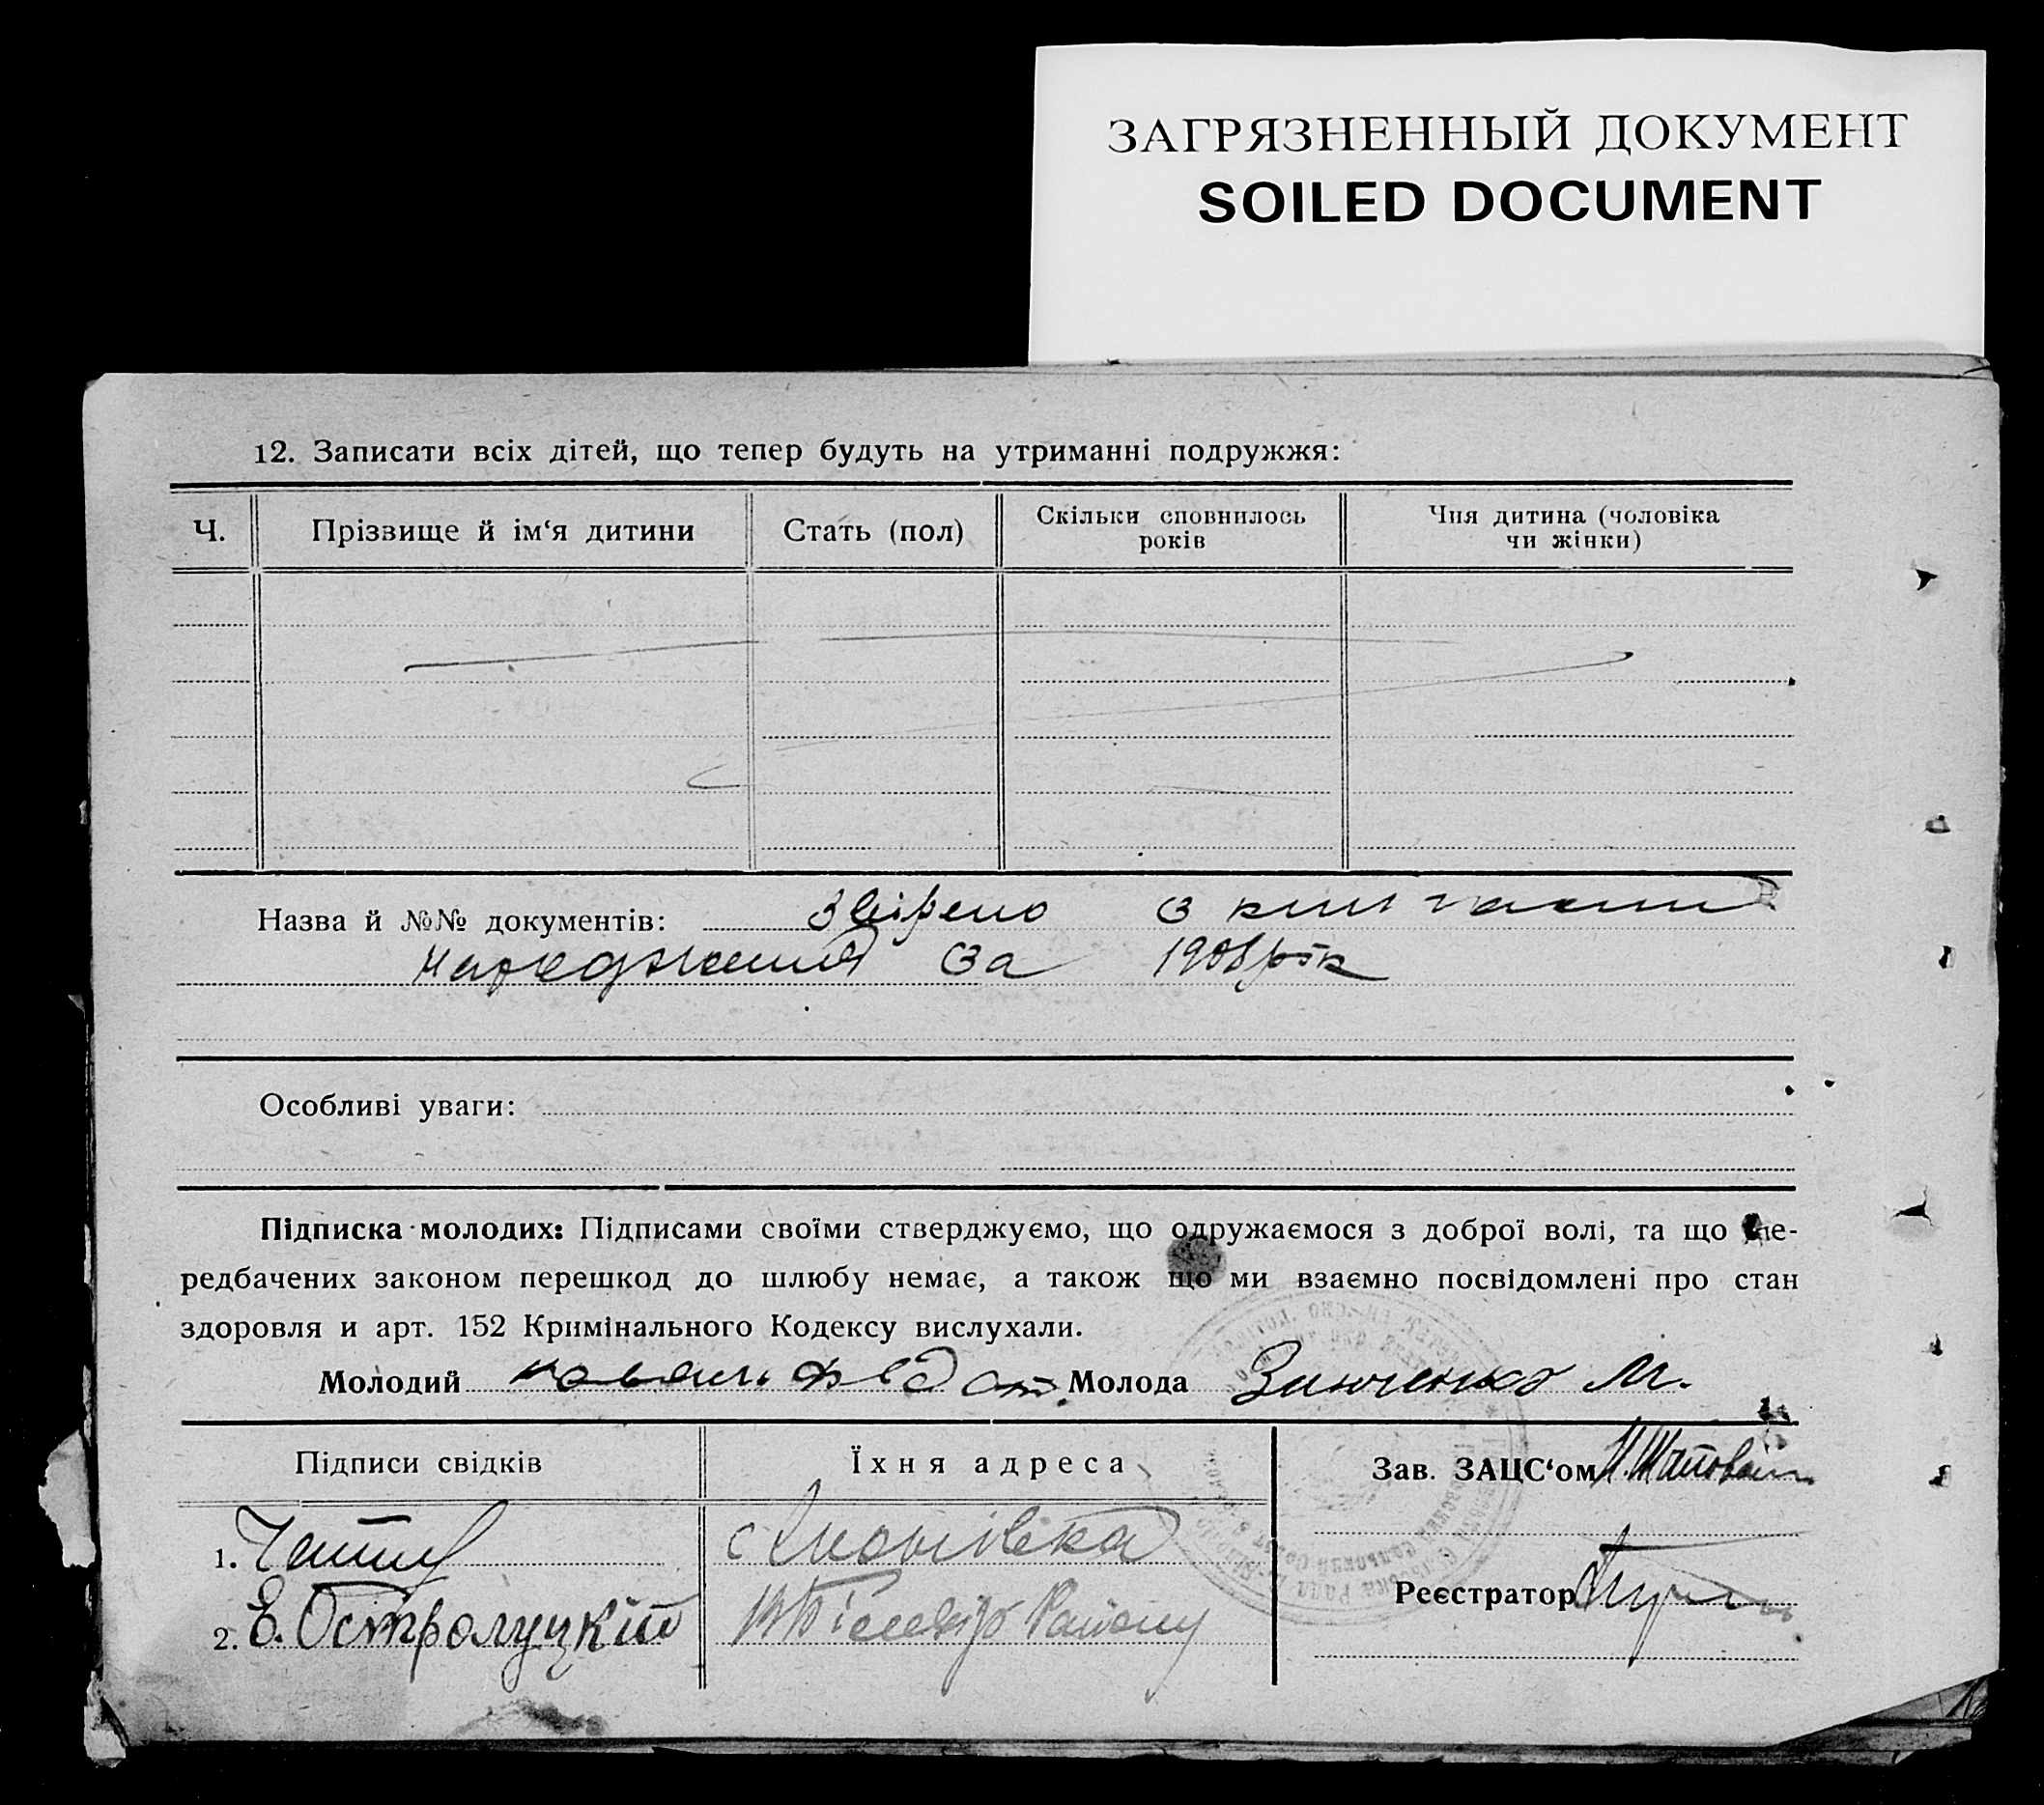 ЗАГРЯЗНЕННЫЙ ДОКУМЕНТ
SOILED DOCUMENT
12. Записати всіх дітей, що тепер будуть на утриманні подружжя:
Ч. Прізвище й ім‘я дитини Стать (пол) Скільки сповнилось років Чия дитина (чоловіка чи жінки)
Назва й №№ документів: Звірено з книгами
народження за 1908 рік
Особливі уваги:
Підписка молодих: Підписами своїми стверджуємо, що одружаємося з доброї волі, та що пе-
редбачених законом перешкод до шлюбу немає, а також що ми взаємно посвідомлені про стан
здоровля и арт. 152 Кримінального Кодексу вислухали.
Молодий Федот Молода Зинченко М.
Підписи свідків Їхня адреса Зав. ЗАЦС‘ом
1. с
Реєстратор
2. Е. Остролуцкий Району